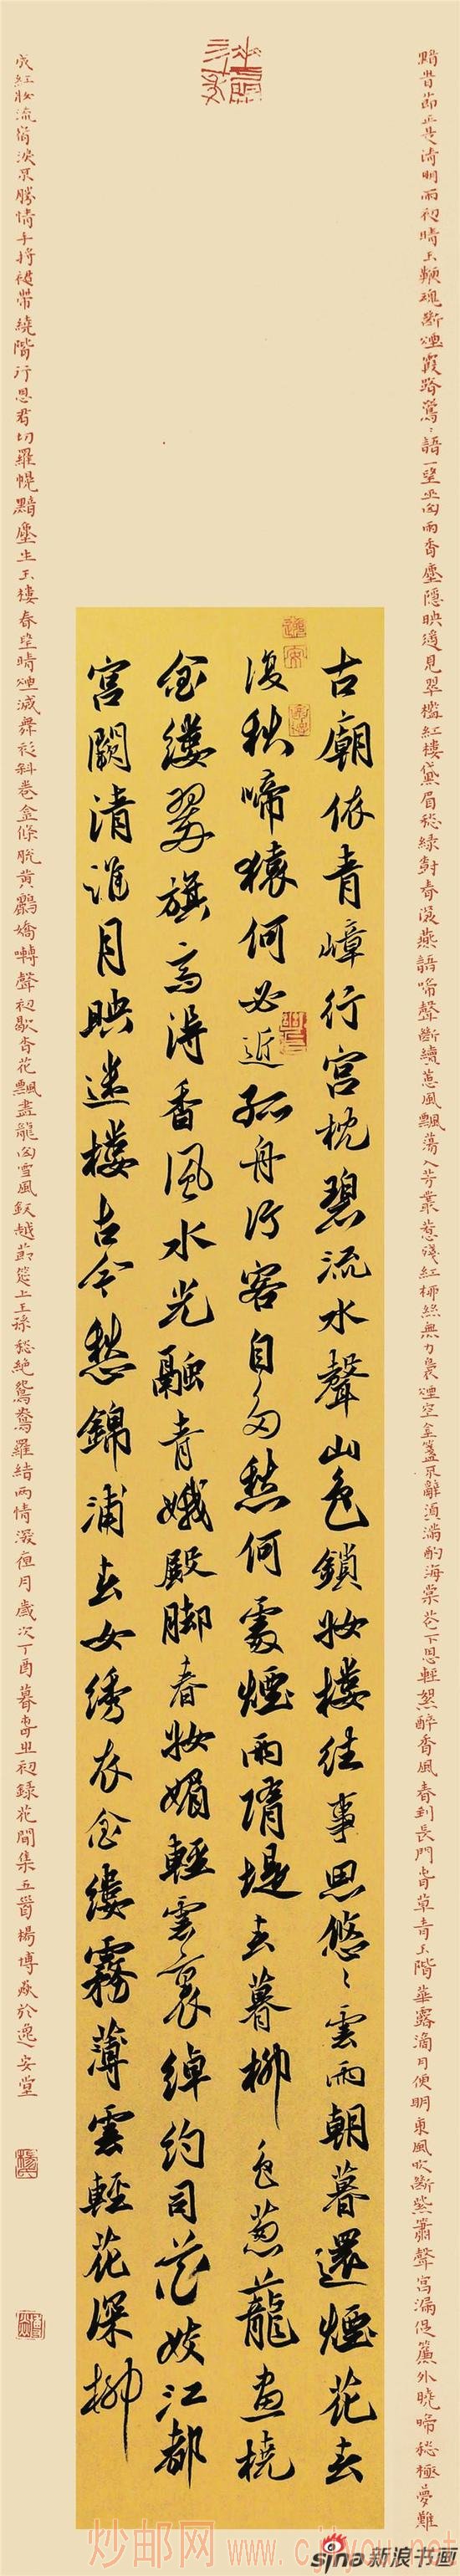 黯旹節正是清明雨初晴玉鞭魂斷煙霞路鶯〻語一望巫山雨香塵隱映遙見翠檻紅樓黛眉愁綠樹春深燕語啼聲斷續蕙風飄蕩入芳叢惹殘紅柳絲無力裊煙空金盞不辭須滿酌海棠花下思醉香風春到長門旹草青玉階華露滴月便明東風吹斷紫簫聲宮漏促簾外曉啼愁極夢難
古廟依青嶂行宮枕碧流水聲山色鎖妝樓往事思悠〻雲雨朝暮還煙花春
復秋啼猿何必近孤舟行客自多愁何處煙雨隋堤春暮柳色蔥蘢畫橈
金縷翠旗高得香風水光融青娥殿腳春妝媚輕雲裏綽約司花妓江都
宮闕清淮月映迷樓古今愁錦浦春女繡衣金縷霧薄雲輕花深柳
成紅妝流宿淚不勝情手將裙帶繞階行思君切羅幌黯塵生玉樓春望晴煙滅舞衫斜卷金條脫黃鸝嬌囀聲初歇杏花飄盡龍山雪風釵越節筵上王孫愁絕鴛鴦羅結兩情深夜月歲次丁酉暮春之初錄花間集五首楊博焱於逸安堂
炒邮网 www.cjiyou.net
sina 新浪书画